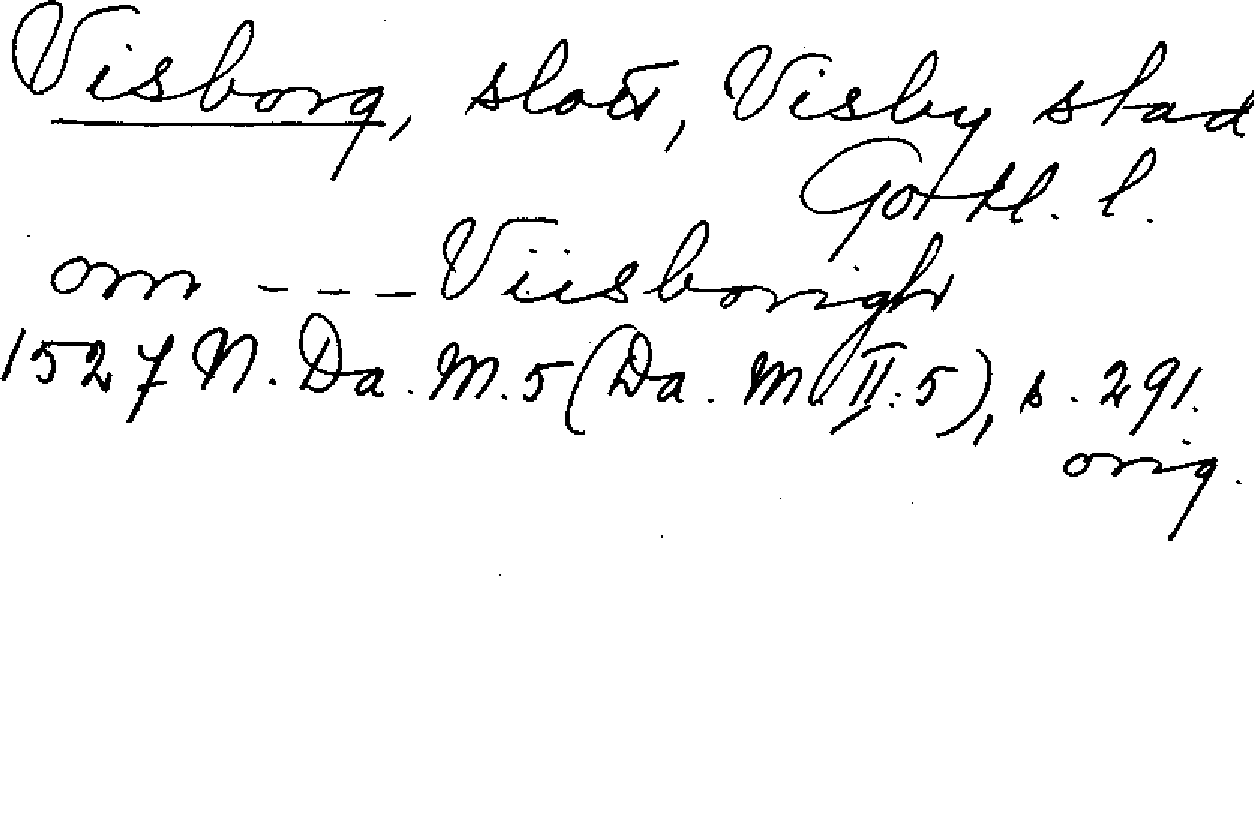 Visborg, slott, Visby stad
Gotl. l.
om - - - Viisborigh
1527 N. Da. M. 5 (Da. M. II: 5), s. 291.
orig.